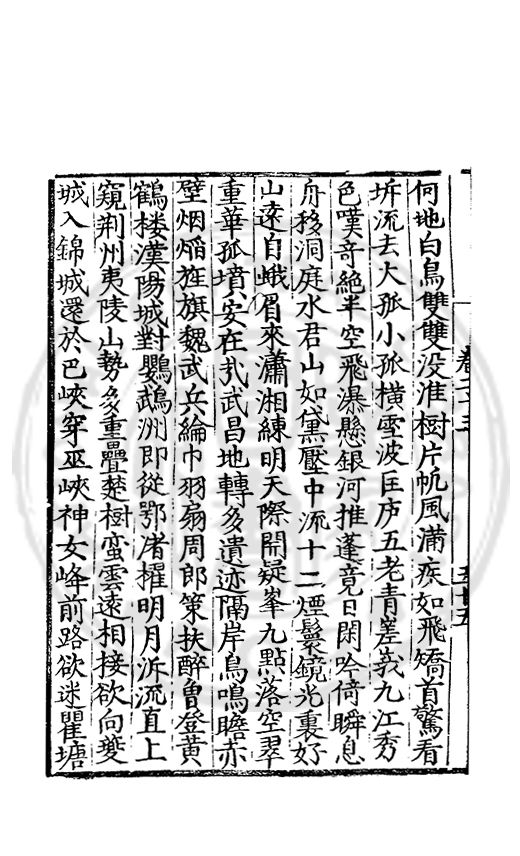 何地白鳥雙雙没淮樹片帆風滿疾如飛矯首驚看
坼流去大孤小孤横雪波匡庐五老青嵳峩九江秀
色嘆奇絶半空飛瀑懸銀河推蓬竟日閑吟倚瞬息
舟移洞庭水君山如黛壓中流十二煙鬟鏡光裏好
山遠自峨眉來瀟湘練明天際開疑峯九點落空翠
重華孤墳安在㢤武昌地轉多遺迹隔岸鳥鳴瞻赤
壁烟熖旌旗魏武兵綸巾羽扇周郎策扶醉曽登黄
鶴楼漢陽城對鸚鵡洲即從鄂渚櫂明月泝流直上
窺荆州夷陵山勢多重疊楚樹蛮雲遠相接欲向夔
城入錦城還於巴峽穿巫峽神女峰前路欲迷瞿塘
卷二十三
五十五